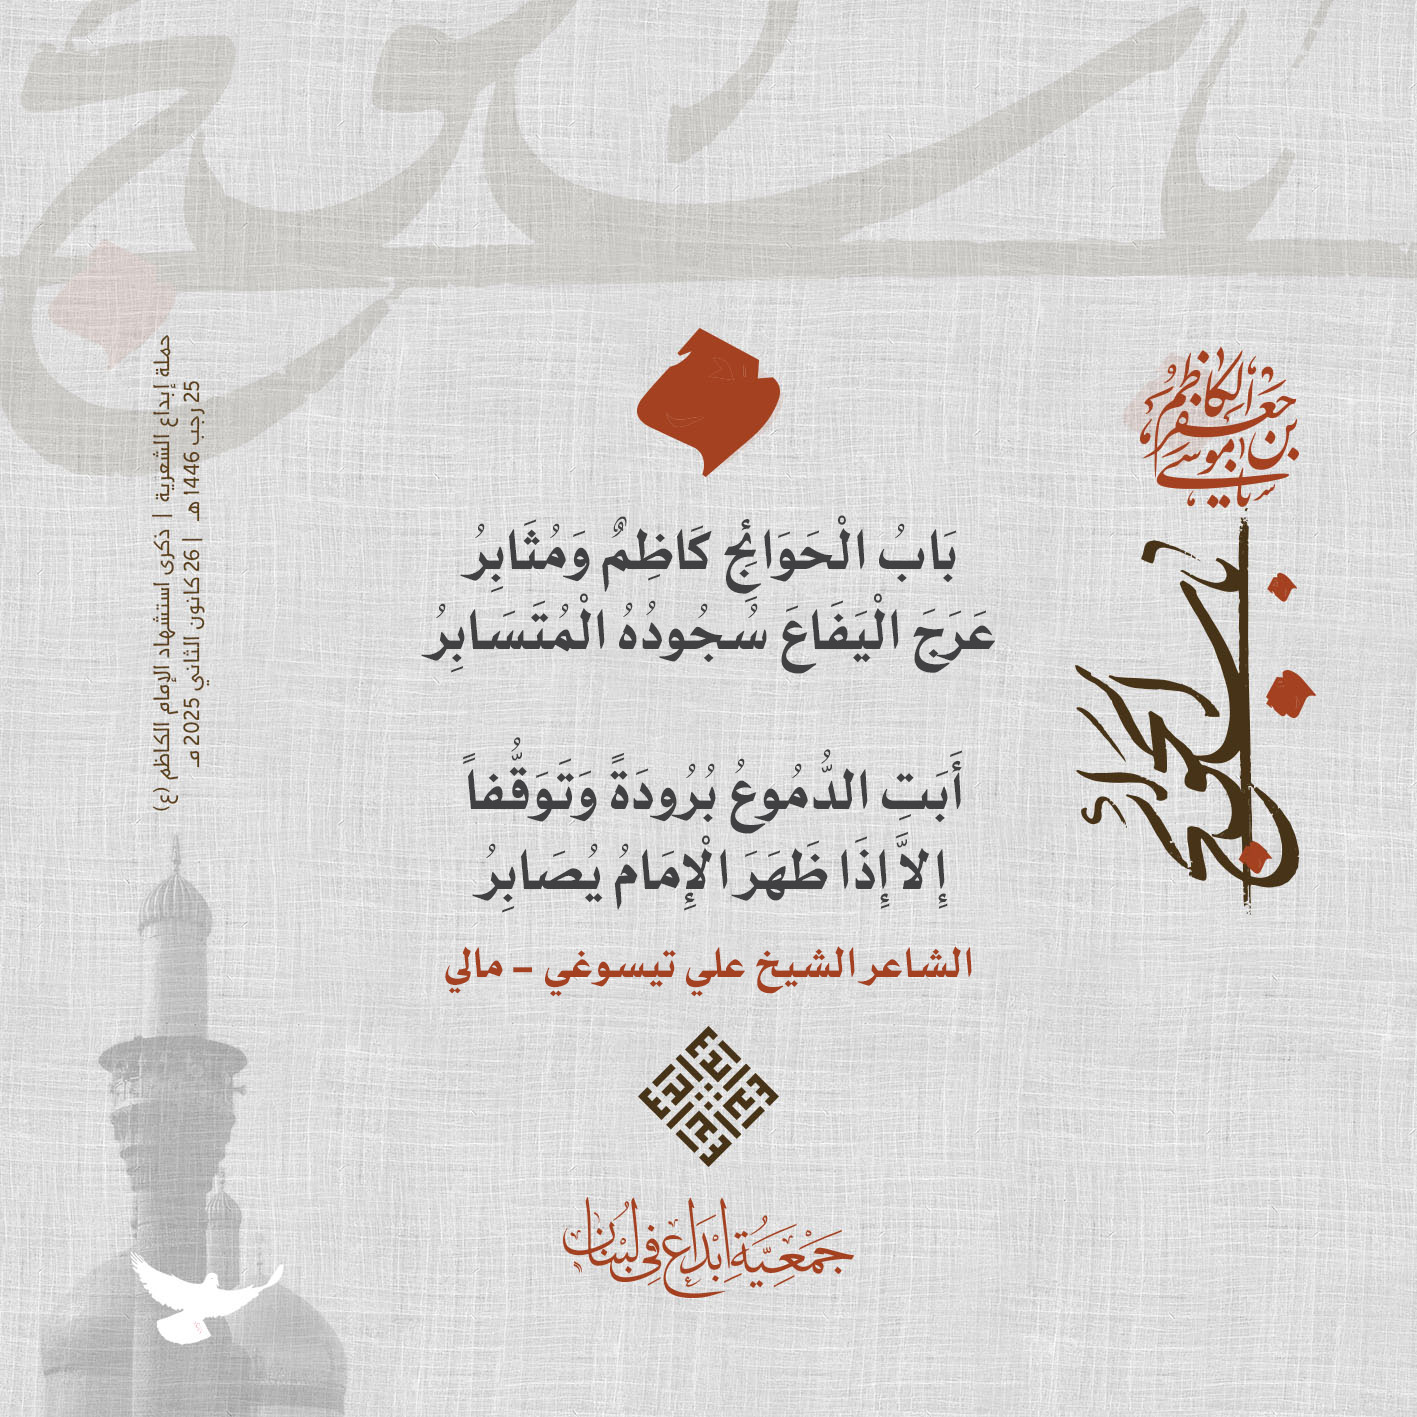 يا موسى بن جعفر الكاظم
باب الحوائج
بَابُ الْحَوَائِجِ كَاظِمٌ وَمُثَابِرُ
عَرَجَ الْيَفَاعَ سُجُودُهُ الْمُتَسَابِرُ
أَبَتِ الدُّمُوعُ بُرُودَةً وَتَوَقُّفاً
إِلاَّ إِذَا ظَهَرَ الْإِمَامُ يُصَابِرُ
الشاعر الشيخ علي تيسوغي – مالي
إبداع
جَمْعِيَّةُ إِبْدَاع فِي لُبْنَان
حملة إبداع الشعرية | ذكرى استشهاد الإمام الكاظم (ع)
25 رجب 1446 هـ | 26 كانون الثاني 2025 مـ